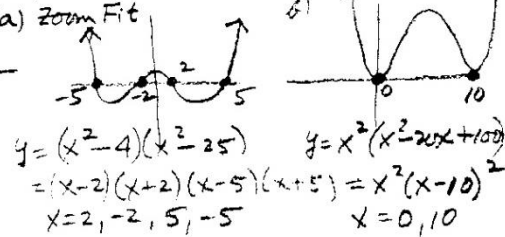 a) Zoom Fit
-5 -2 2 5
y=(x²-4)(x²-25)
=(x-2)(x+2)(x-5)(x+5)
x=2,-2,5,-5
b)
0 10
y=x²(x²-20x+100)
=x²(x-10)²
x=0,10